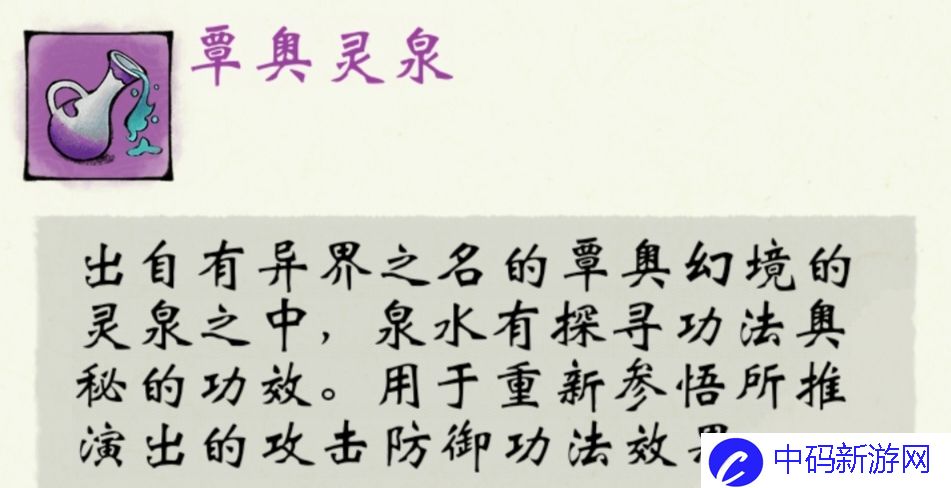 覃奥灵泉
出自有异界之名的覃奥幻境的
灵泉之中，泉水有探寻功法奥
秘的功效。用于重新参悟所推
演出的攻击防御功法效
中码新游网